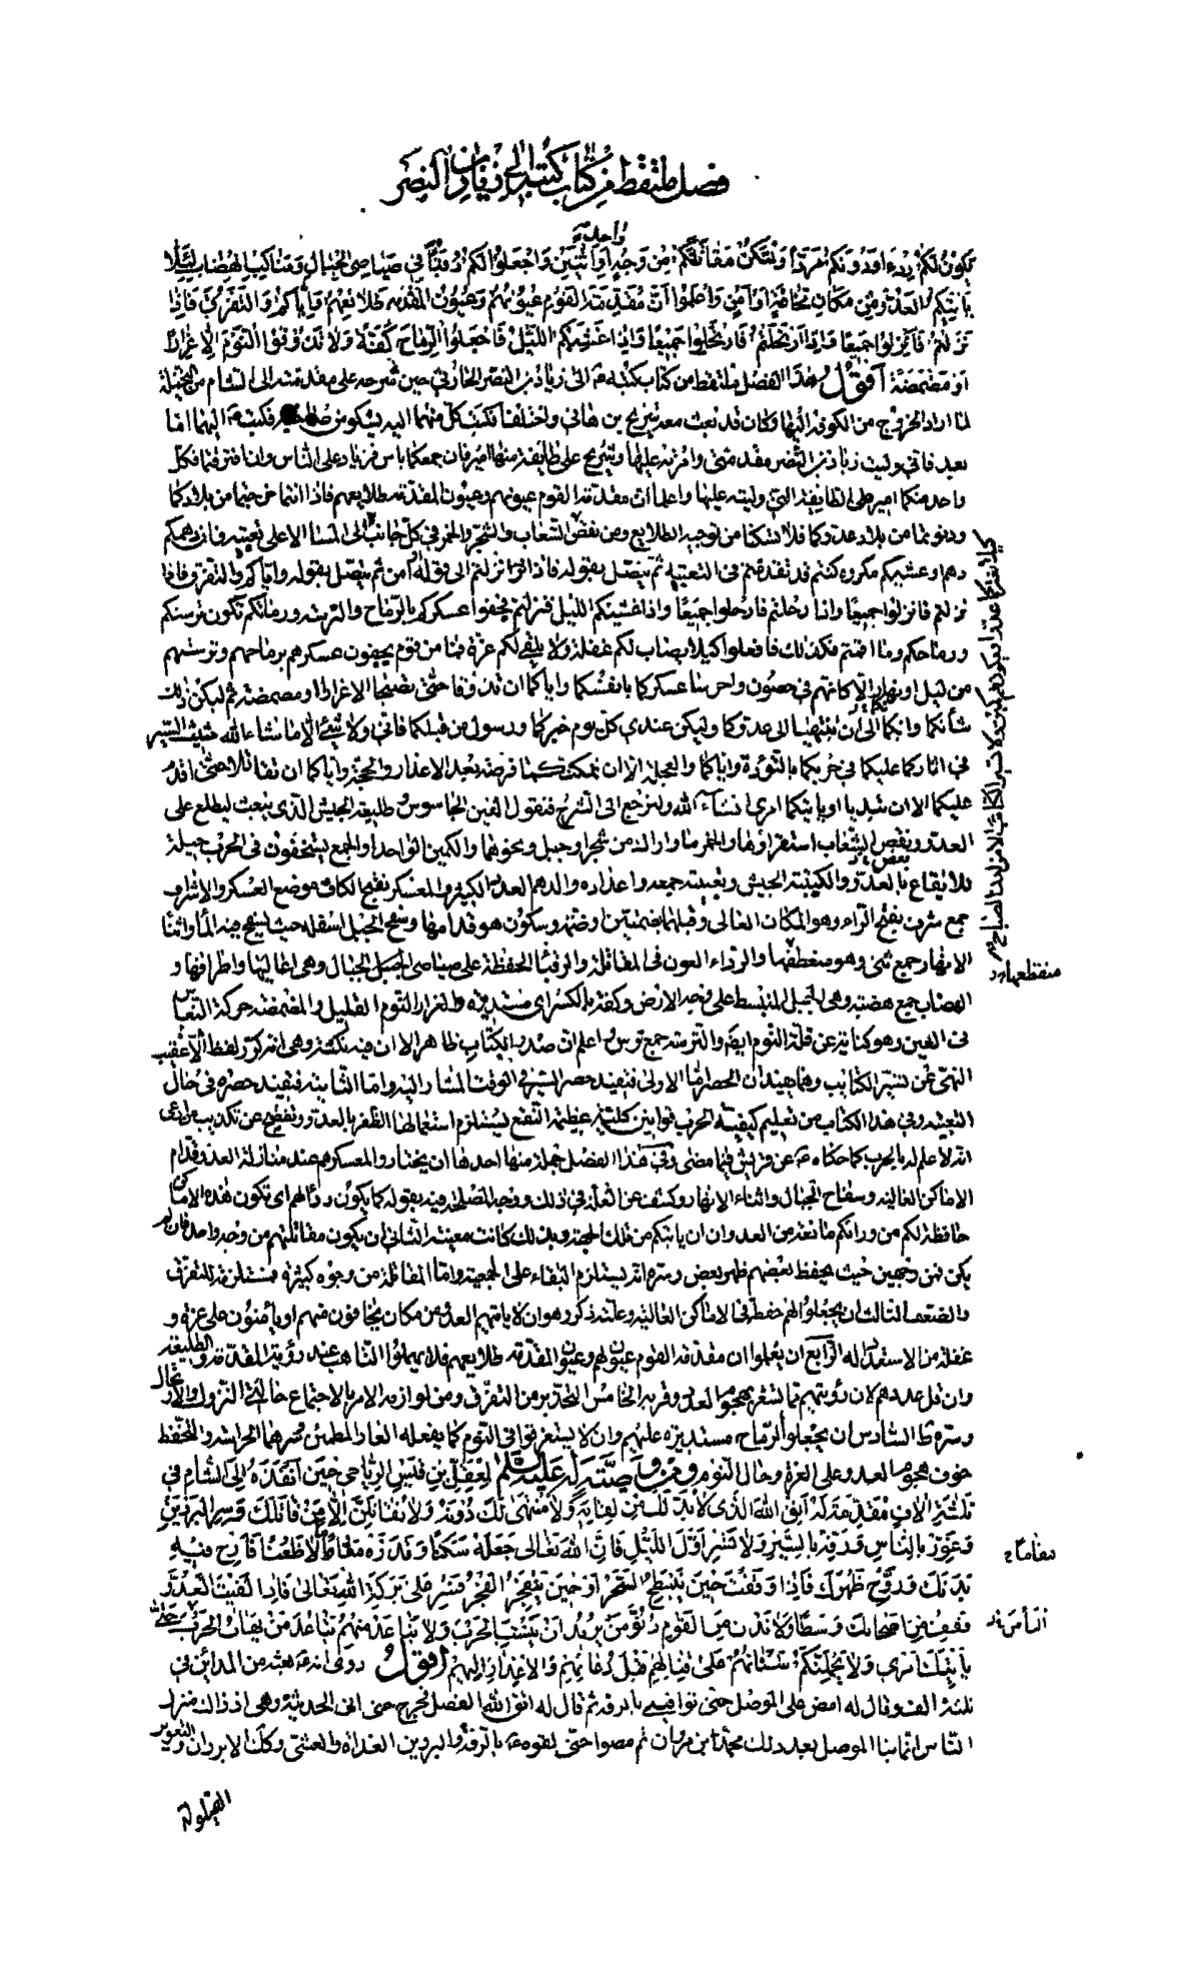 فصل ملتقط من كتاب كتبه الى زياد بن النصر
يكون لكم ردءا ودونكم مردا ولتكن مقاتلتكم من وجه واحد او اثنين واجعلوا لكم رقباء في صياصي الجبال ومناكب الهضاب لئلا
ياتيكم العدو من مكان مخافة او امن واعلموا ان مقدمة القوم عيونهم وعيون المقدمة طلائعهم واياكم والتفرق فاذا
نزلتم فانزلوا جميعا واذا ارتحلتم فارتحلوا جميعا واذا غشيكم الليل فاجعلوا الرماح كفة ولا تذوقوا النوم الا غرارا
او مضمضة اقول هذا الفصل ملتقط من كتاب كتبه الى زياد بن النصر الحارثي حين سرحه على مقدمته الى الشام من النخيلة
لما اراد الخروج من الكوفة اليها وكان قد بعث معه شريح بن هاني واختلفا فكتب كل منهما اليه يشكو من صاحبه فكتب اليهما اما
بعد فاني وليت زياد بن النضر مقدمتي وامرته عليها وشريح على طائفة منها امير فان جمعكما باس فزياد على الناس وان افترقتما فكل
واحد منكما امير على الطائفة التي وليته عليها واعلما ان مقدمة القوم عيونهم وعيون المقدمة طلائعهم فاذا انتما خرجتما من بلادكما
ودنوتما من بلاد عدوكما فلا تسكنا من توجيه الطلايع ومن نفض الشعاب والشجر والخمر في كل جانب
دهم او غشيكم مكروه كنتم قد تقدمتم في التعبية ثم يتصل بقوله فاذا نزلتم الى قوله او امن ثم يتصل بقوله واياكم والتفرق فاذا
نزلتم فانزلوا جميعا واذا رحلتم فارحلوا جميعا واذا غشيكم الليل فنزلتم فحفوا عسكركم بالرماح والترسة ورماتكم تكون ترستكم
ورماحكم وما اقمتم فكذلك فافعلوا كيلا يصاب لكم غفلة ولا يلفى لكم غرة فما من قوم يحفون عسكرهم برماحهم وترستهم
من ليل او نهار الا كانهم في حصون واحرسا عسكركما بانفسكما واياكما ان تذوقا حتى تصبحا الا غرارا او مضمضة ثم ليكن ذلك
شانكما ودابكما الى ان تنتهيا الى عدوكما وليكن عندي كل يوم خبركما ورسول من قبلكما فاني ولا شيء الا ما شاء الله حثيث السير
في اثاركما عليكما في حربكما بالتؤدة واياكما والعجلة الا ان تمكنكما فرصة بعد الاعذار والحجة واياكما ان تقاتلا حتى اقدم
عليكما الا ان تبدءا او ياتيكما امري انشاء الله ولنرجع الى الشرح فنقول العين الجاسوس وطليعة الجيش الذي يبعث ليطلع على
العدو ونفض الشعاب استقراؤها والخمر ما واراك من شجر او جبل ونحوهما والكمين الواحد او الجمع يستخفون في الحرب حيلة
للايقاع بالعدو والكتيبة الجيش وتعبيته جمعه واعداده والدهم العدد الكثير والمعسكر بفتح الكاف موضع العسكر والاشراف
جمع شرف بفتح الراء وهو المكان العالي وقبلها بضمتين او ضمة وسكون هو قدامها وسفح الجبل اسفله حيث يسفح فيه الماء واثناء
الانهار جمع ثنى وهو منعطفها والردء العون في المقاتلة والرقباء الحفظة على صياصي الجبال وهي اعاليها واطرافها و
الهضاب جمع هضبة وهي الجبل المنبسط على وجه الارض وكفة بالكسر اي مستديرة والغرار النوم القليل والمضمضة حركة النعاس
في العين وهو كناية عن قلة النوم ايضا والترسة جمع ترس واعلم ان صدر الكتاب ظاهر الا ان فيه نكتة وهي انه كرر لفظ الا عقيب
النهي عن تسيير الكتايب وهما يفيدان الحصر اما الاولى فتفيد حصر السير في الوقت المشار اليه واما الثانية فتفيد حصره في حال
التعبية وفي هذا الكتاب من تعليم كيفية الحرب قوانين كلية عظيمة النفع يستلزم استعمالها الظفر بالعدو ويفضح عن تكذيب من ادعى
انه لا علم له بالحرب كما حكاه عن قريش فيما مضى وفي هذا الفصل جملة منها احدها ان يختاروا لمعسكرهم عند منازلة العدو قدام
الاماكن العالية وسفاح الجبال واثناء الانهار وكشف عن العلة في ذلك ووجه المصلحة فيه بقوله كيما يكون ردءا لهم اي تكون هذه الاماكن
حافظة لكم من ورائكم مانعة من العدو ان ياتيكم من تلك الجهة وبذلك كانت معينة الثاني ان يكون مقاتلتهم من وجه واحد فان لم
يكن فمن وجهين حيث يحفظ بعضهم ظهر بعض وسره انه يستلزم البقاء على الجمعية واما المقاتلة من وجوه كثيرة فمستلزمة للتفرق
والضعف الثالث ان يجعلوا لهم حفظة في الاماكن العالية وعلته ذكر وهو ان لا ياتيهم العدو من مكان يخافون منهم او يامنون على غرة و
غفلة من الاستعداد له الرابع ان يعلموا ان مقدمة القوم عيون لهم وعيون المقدمة طلايعهم فلا يهملوا التاهب عند رؤية المقدمة والطليعة
وان قل عددهم لان رؤيتهم مما تشعر بهجوم العدو وقربه الخامس التحذير من التفرق ومن لوازمه الامر بالاجتماع حالتي النزول والارتحال
وسره ظ السادس ان يجعلوا الرماح مستديرة عليهم وان لا يستغرقوا في النوم كما يفعله القار المطمئن وسرهما الحراسة والتحفظ
خوف هجوم العدو على الغرة وحال النوم ومن وصيته له عليه السلم لمعقل بن قيس الرياحي حين انفذه الى الشام في
ثلثة الاف مقدمة له اتق الله الذي لابد لك من لقائه ولا منتهى لك دونه ولا تقاتلن الا من قاتلك وسر البردين
وغور بالناس ورفه بالسير ولا تسر اول الليل فان الله تعالى جعله سكنا وقدره مقاما لا ظعنا فارح فيه
بدنك وروح ظهرك فاذا وقفت حين ينبطح السحر او حين ينفجر الفجر فسر على بركة الله تعالى فاذا لقيت العدو
فقف من اصحابك وسطا ولا تدن من القوم دنو من يريد ان ينشب الحرب ولا تباعد منهم تباعد من يهاب الحرب حتى
ياتيك امري ولا يحملنكم شنانهم على قتالهم قبل دعائهم والاعذار اليهم اقول روى انه بعثه من المدائن في
ثلثة الف وقال له امض على الموصل حتى توافيني بالرقة ثم قال له اتق الله الفصل فخرج حتى اتى الحديثة وهي اذ ذاك منزل
الناس انما بنا الموصل بعد ذلك محمد بن مروان ثم مضوا حتى لقوه بالرقة والبردين الغداة والعشى وكذا الابردان والتغوير
القيلولة
منقطعها
مقاما
الناس